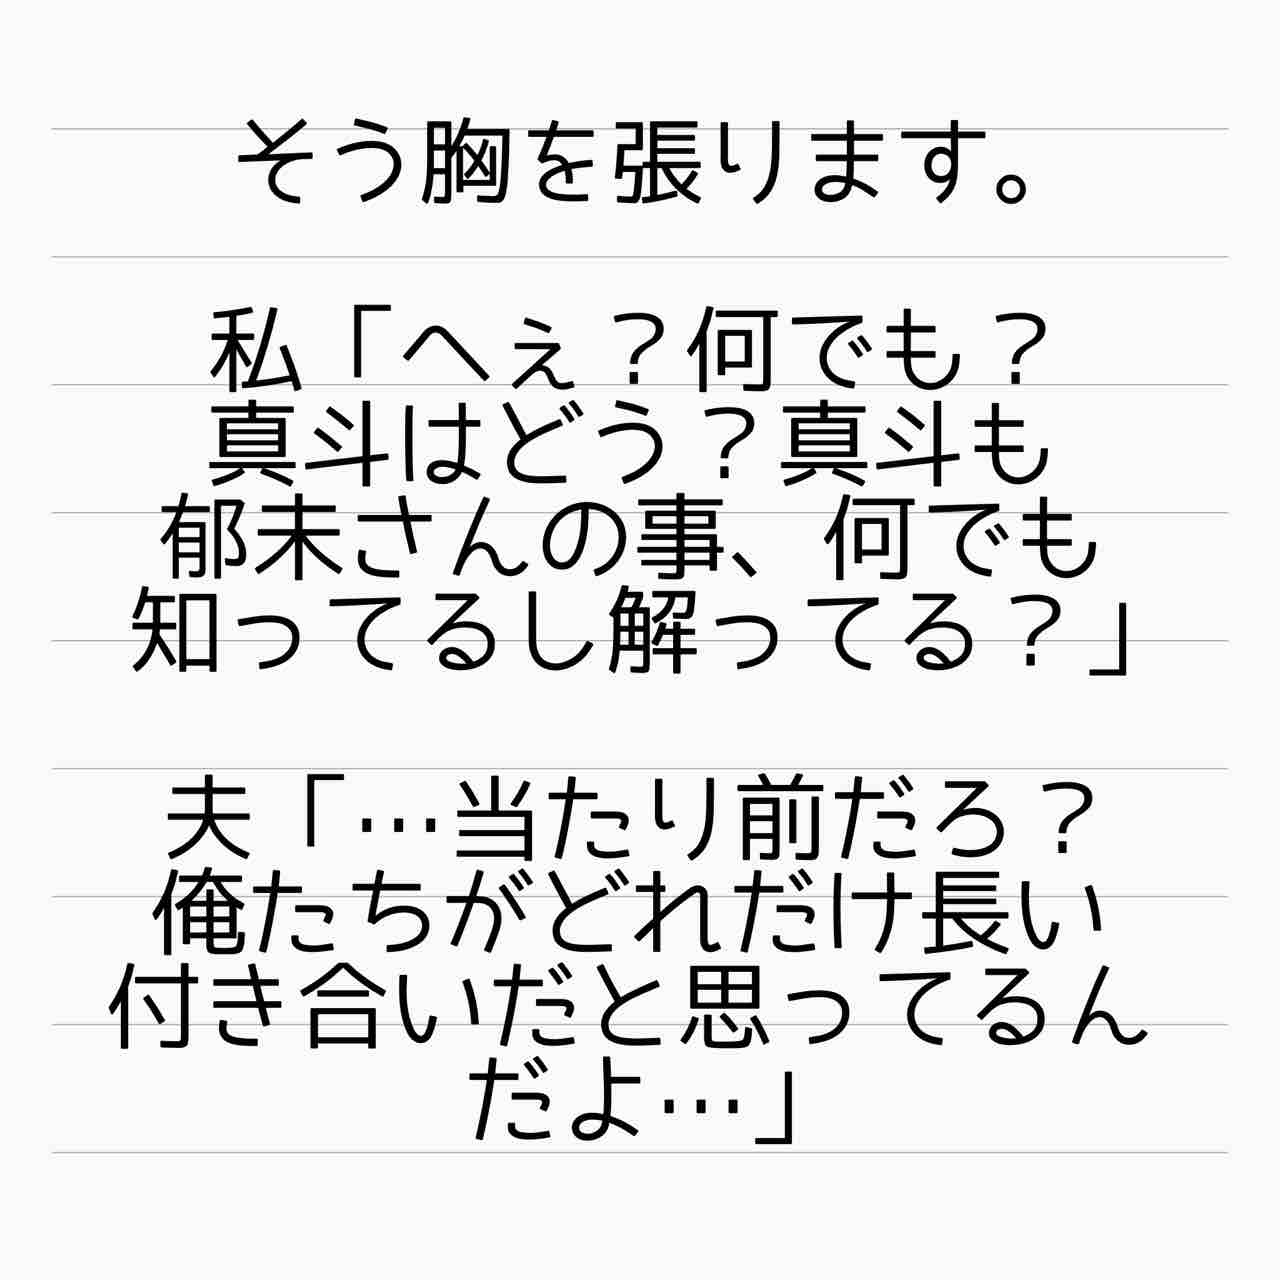 そう胸を張ります。
私「へぇ？何でも？
真斗はどう？真斗も
郁未さんの事、何でも
知ってるし解ってる？」
夫「…当たり前だろ？
俺たちがどれだけ長い
付き合いだと思ってるん
だよ…」